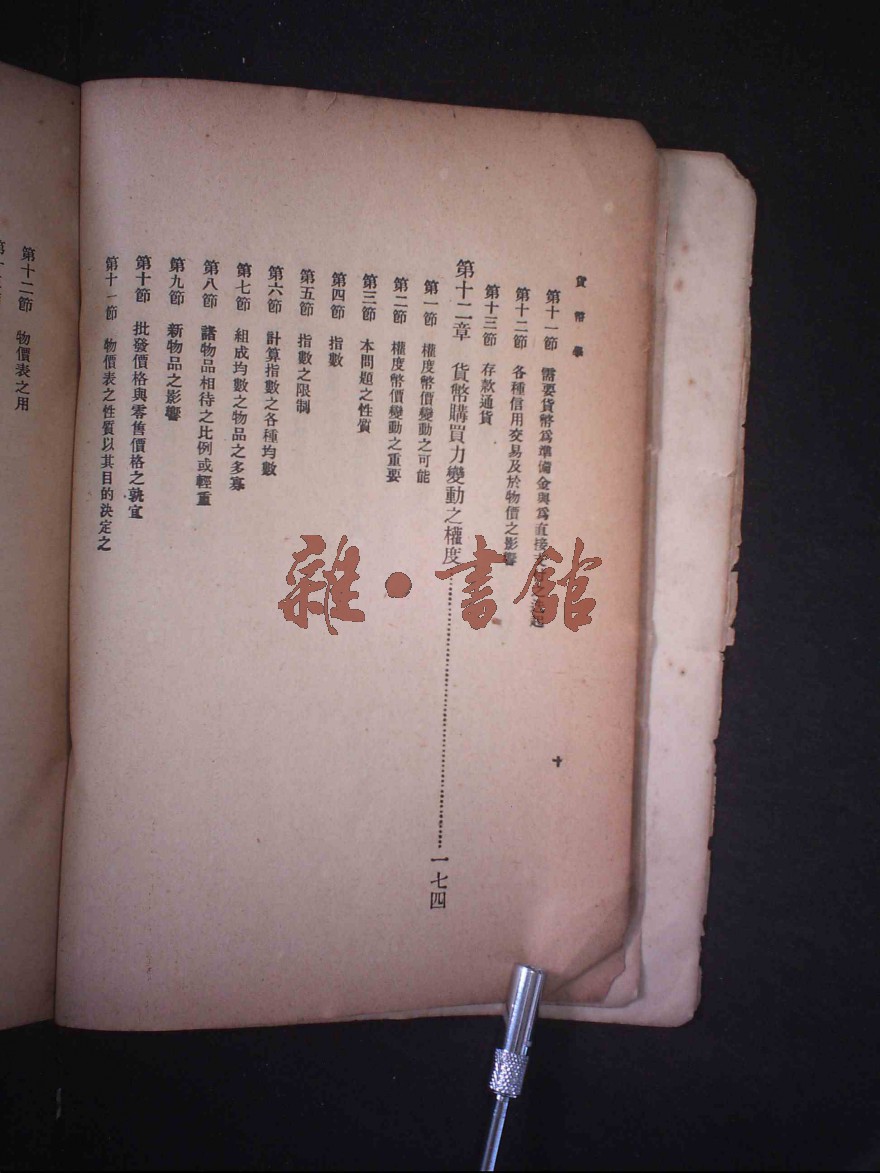 貨幣學
第十一節 需要貨幣爲準備金與爲直接
第十二節 各種信用交易及於物價之影響
第十三節 存款通貨
第十二章 貨幣購買力變動之權度……一七四
第一節 權度幣價變動之可能
第二節 權度幣價變動之重要
第三節 本問題之性質
第四節 指數
第五節 指數之限制
第六節 計算指數之各種均數
第七節 組成均數之物品之多寡
第八節 諸物品相待之比例或輕重
第九節 新物品之影響
第十節 批發價格與零售價格之孰宜
第十一節 物價表之性質以其目的決定之
十
第十二節 物價表之用
雜·書館